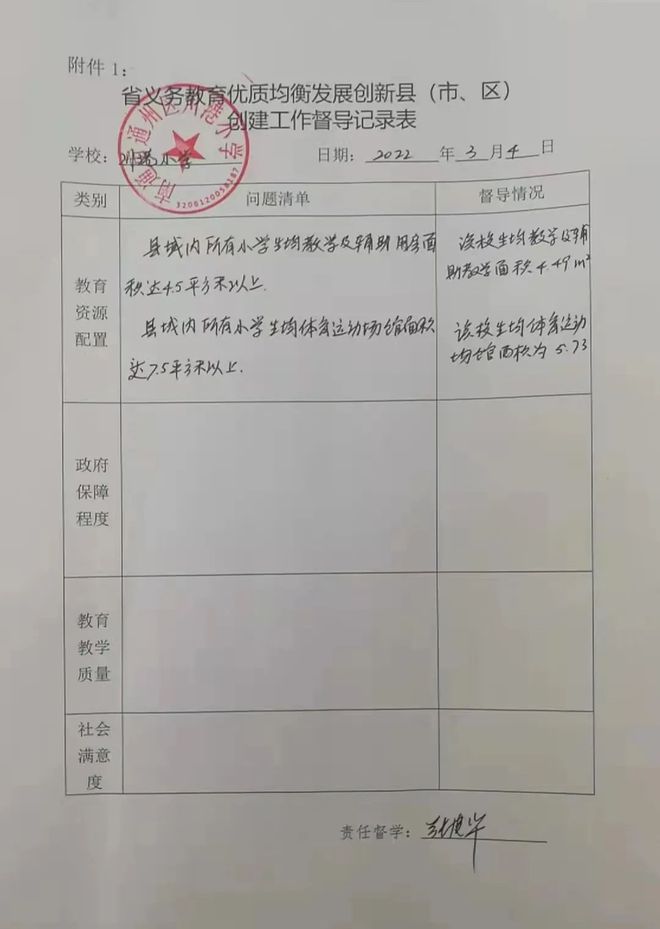 附件1：
省义务教育优质均衡发展创新县（市、区）
创建工作督导记录表
学校：川港小学 日期：2022 年 3 月 4 日
南通市通州区川港小学
3206120058187
类别 问题清单 督导情况
教育
资源
配置
县域内所有小学生均教学及辅助用房面
积达4.5平方米以上.
县域内所有小学生均体育运动场馆面积
达7.5平方米以上.
该校生均教学及辅
助教学面积4.49m²
该校生均体育运动
场馆面积为5.73
政府
保障
程度
教育
教学
质量
社会
满意
度
责任督学：